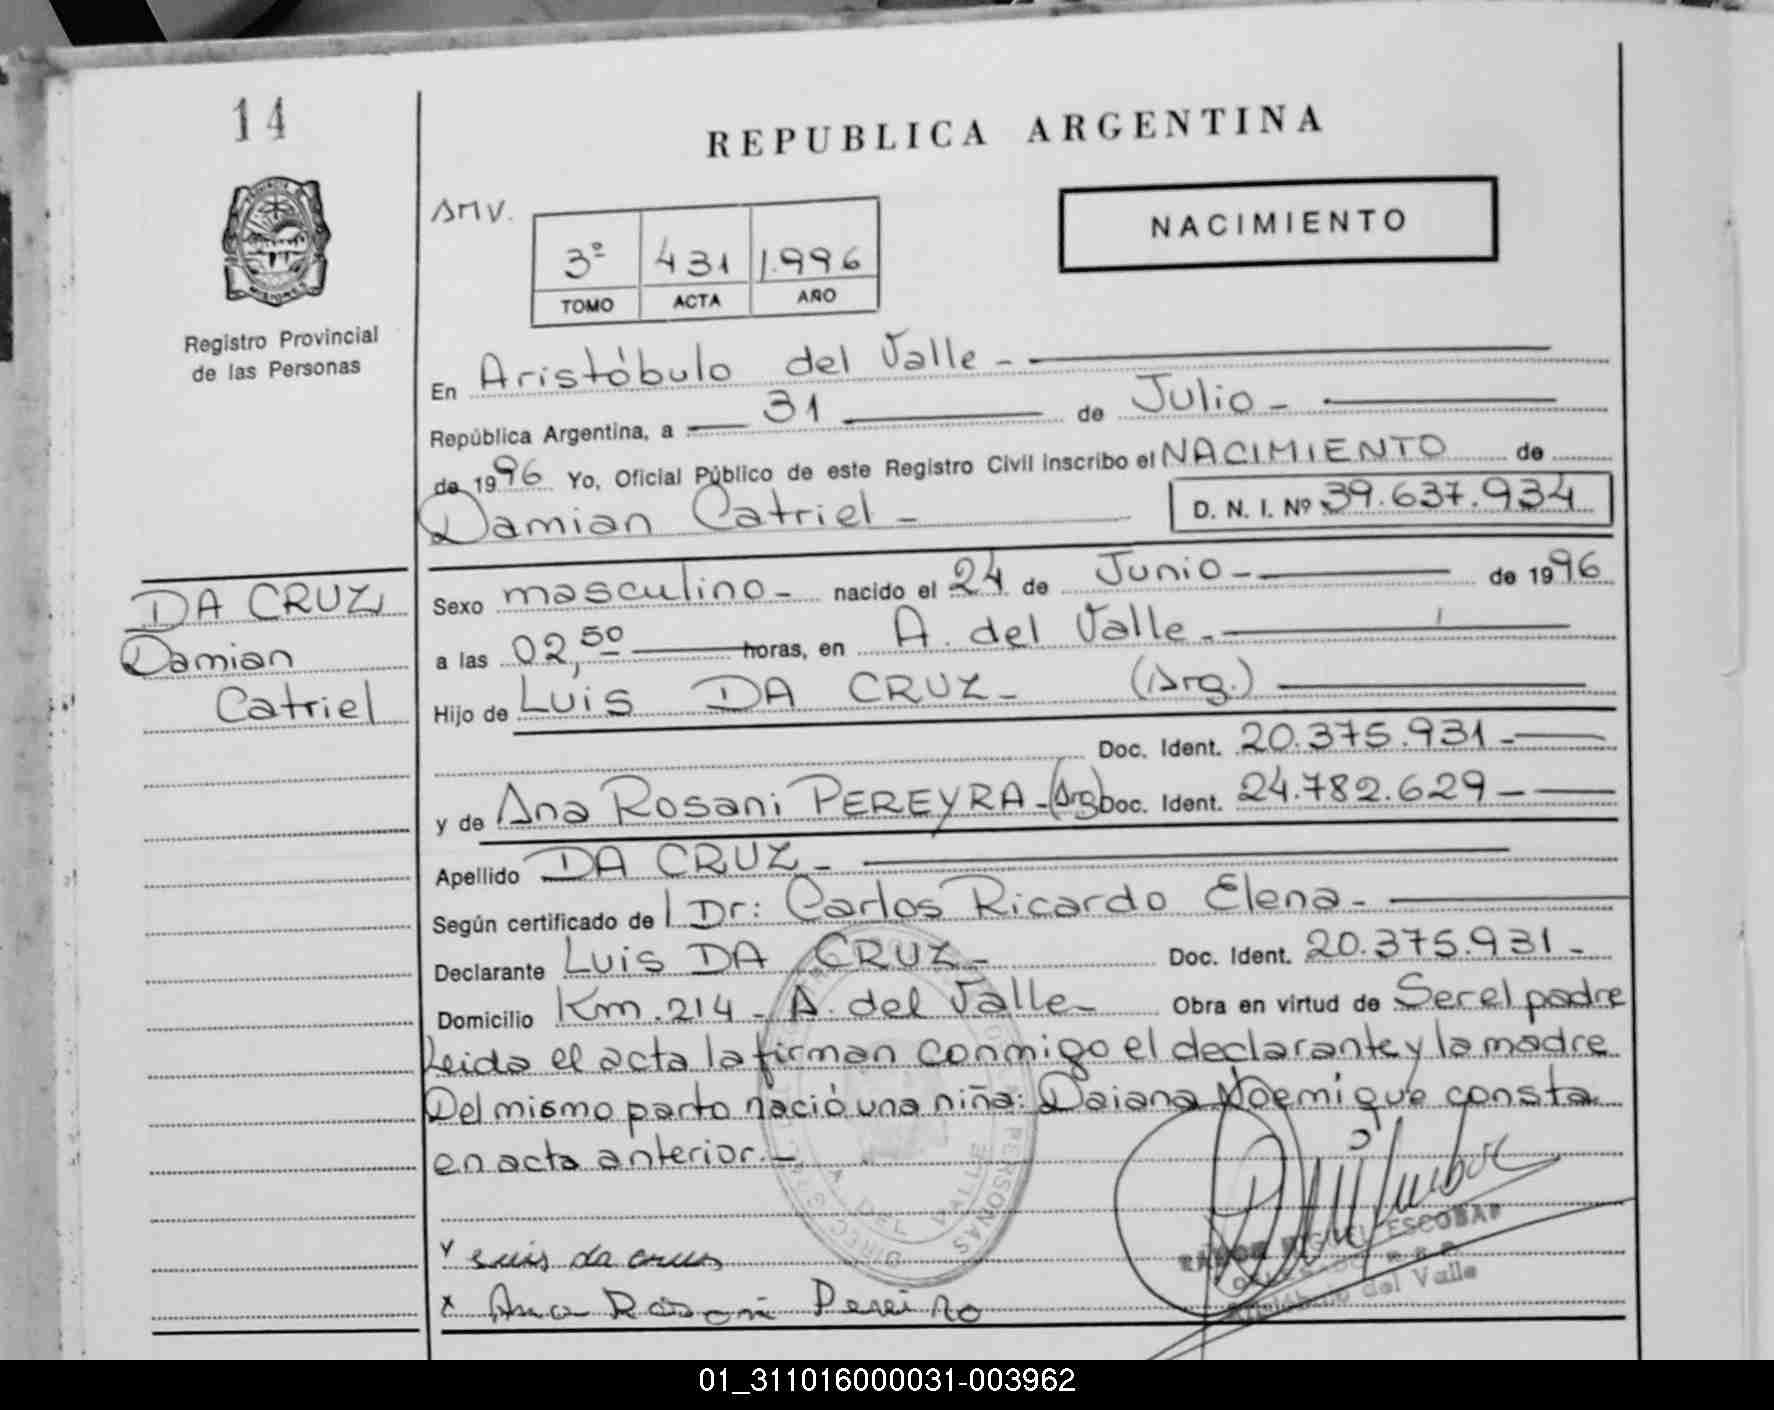 14
REPUBLICA ARGENTINA
AMV.
NACIMIENTO
3º 431 1.996
TOMO ACTA AÑO
Registro Provincial
de las Personas
En Aristóbulo del Valle -
República Argentina, a 31 de Julio -
de 1996 Yo, Oficial Público de este Registro Civil inscribo el NACIMIENTO de
Damian Catriel - D. N. I. Nº 39.637.934
DA CRUZ
Damian
Catriel
Sexo masculino - nacido el 24 de Junio - de 1996
a las 02,50 horas, en A. del Valle -
Hijo de Luis DA CRUZ - (Arg.)
Doc. Ident. 20.375.931 -
y de Ana Rosani PEREYRA - (Arg) Doc. Ident. 24.782.629 -
Apellido DA CRUZ -
Según certificado de Dr: Carlos Ricardo Elena -
Declarante Luis DA CRUZ - Doc. Ident. 20.375.931 -
Domicilio Km. 214 - A. del Valle - Obra en virtud de Ser el padre
Leida el acta la firman conmigo el declarante y la madre
Del mismo parto nació una niña: Daiana Noemi que consta
en acta anterior. -
A. DEL VALLE
PERSONAS
Luis da cruz
x Ana Rosani Pereira
RAMON MIGUEL ESCOBAR
Aristóbulo del Valle
01_311016000031-003962